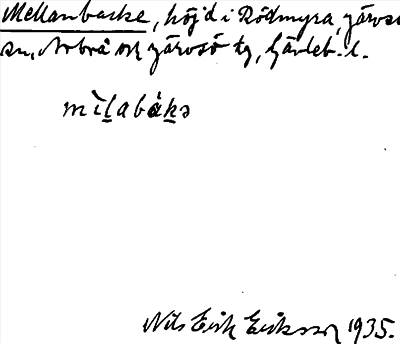 Mellanbacke, höjd i Rödmyra, Järvsö
sn, Arbrå och Järvsö tg, Gävleb. l.
mìlabákə
Nils Erik Eriksson 1935.